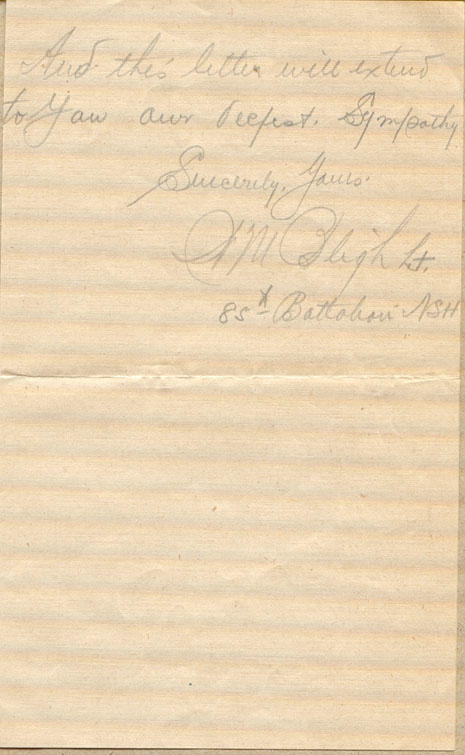 And this letter will extend
to you our deepest. Sympathy
Sincerely, Yours.
M Bligh Lt.
85th Battalion NSH